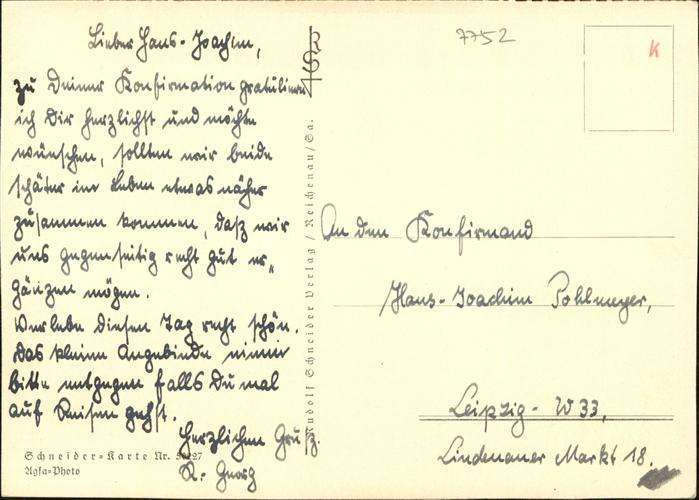 Lieber Hans-Joachim,
zu Deiner Konfirmation gratuliere
ich Dir herzlichst und möchte
wünschen, sollten wir beide
später im Leben etwas näher
zusammen kommen, daß wir
uns gegenseitig recht gut er-
gänzen mögen.
Verlebe diesen Tag recht schön.
Das kleine Angebinde nimm
bitte entgegen falls Du mal
auf Reisen gehst.
Herzlichen Gruß.
R. Georg
Schneider-Karte Nr.
Agfa-Photo
Rudolf Schneider Verlag / Reichenau/Sa.
7752
K
An den Konfirmand
Hans-Joachim Pohlmeyer,
Leipzig - W 33,
Lindenauer Markt 18.